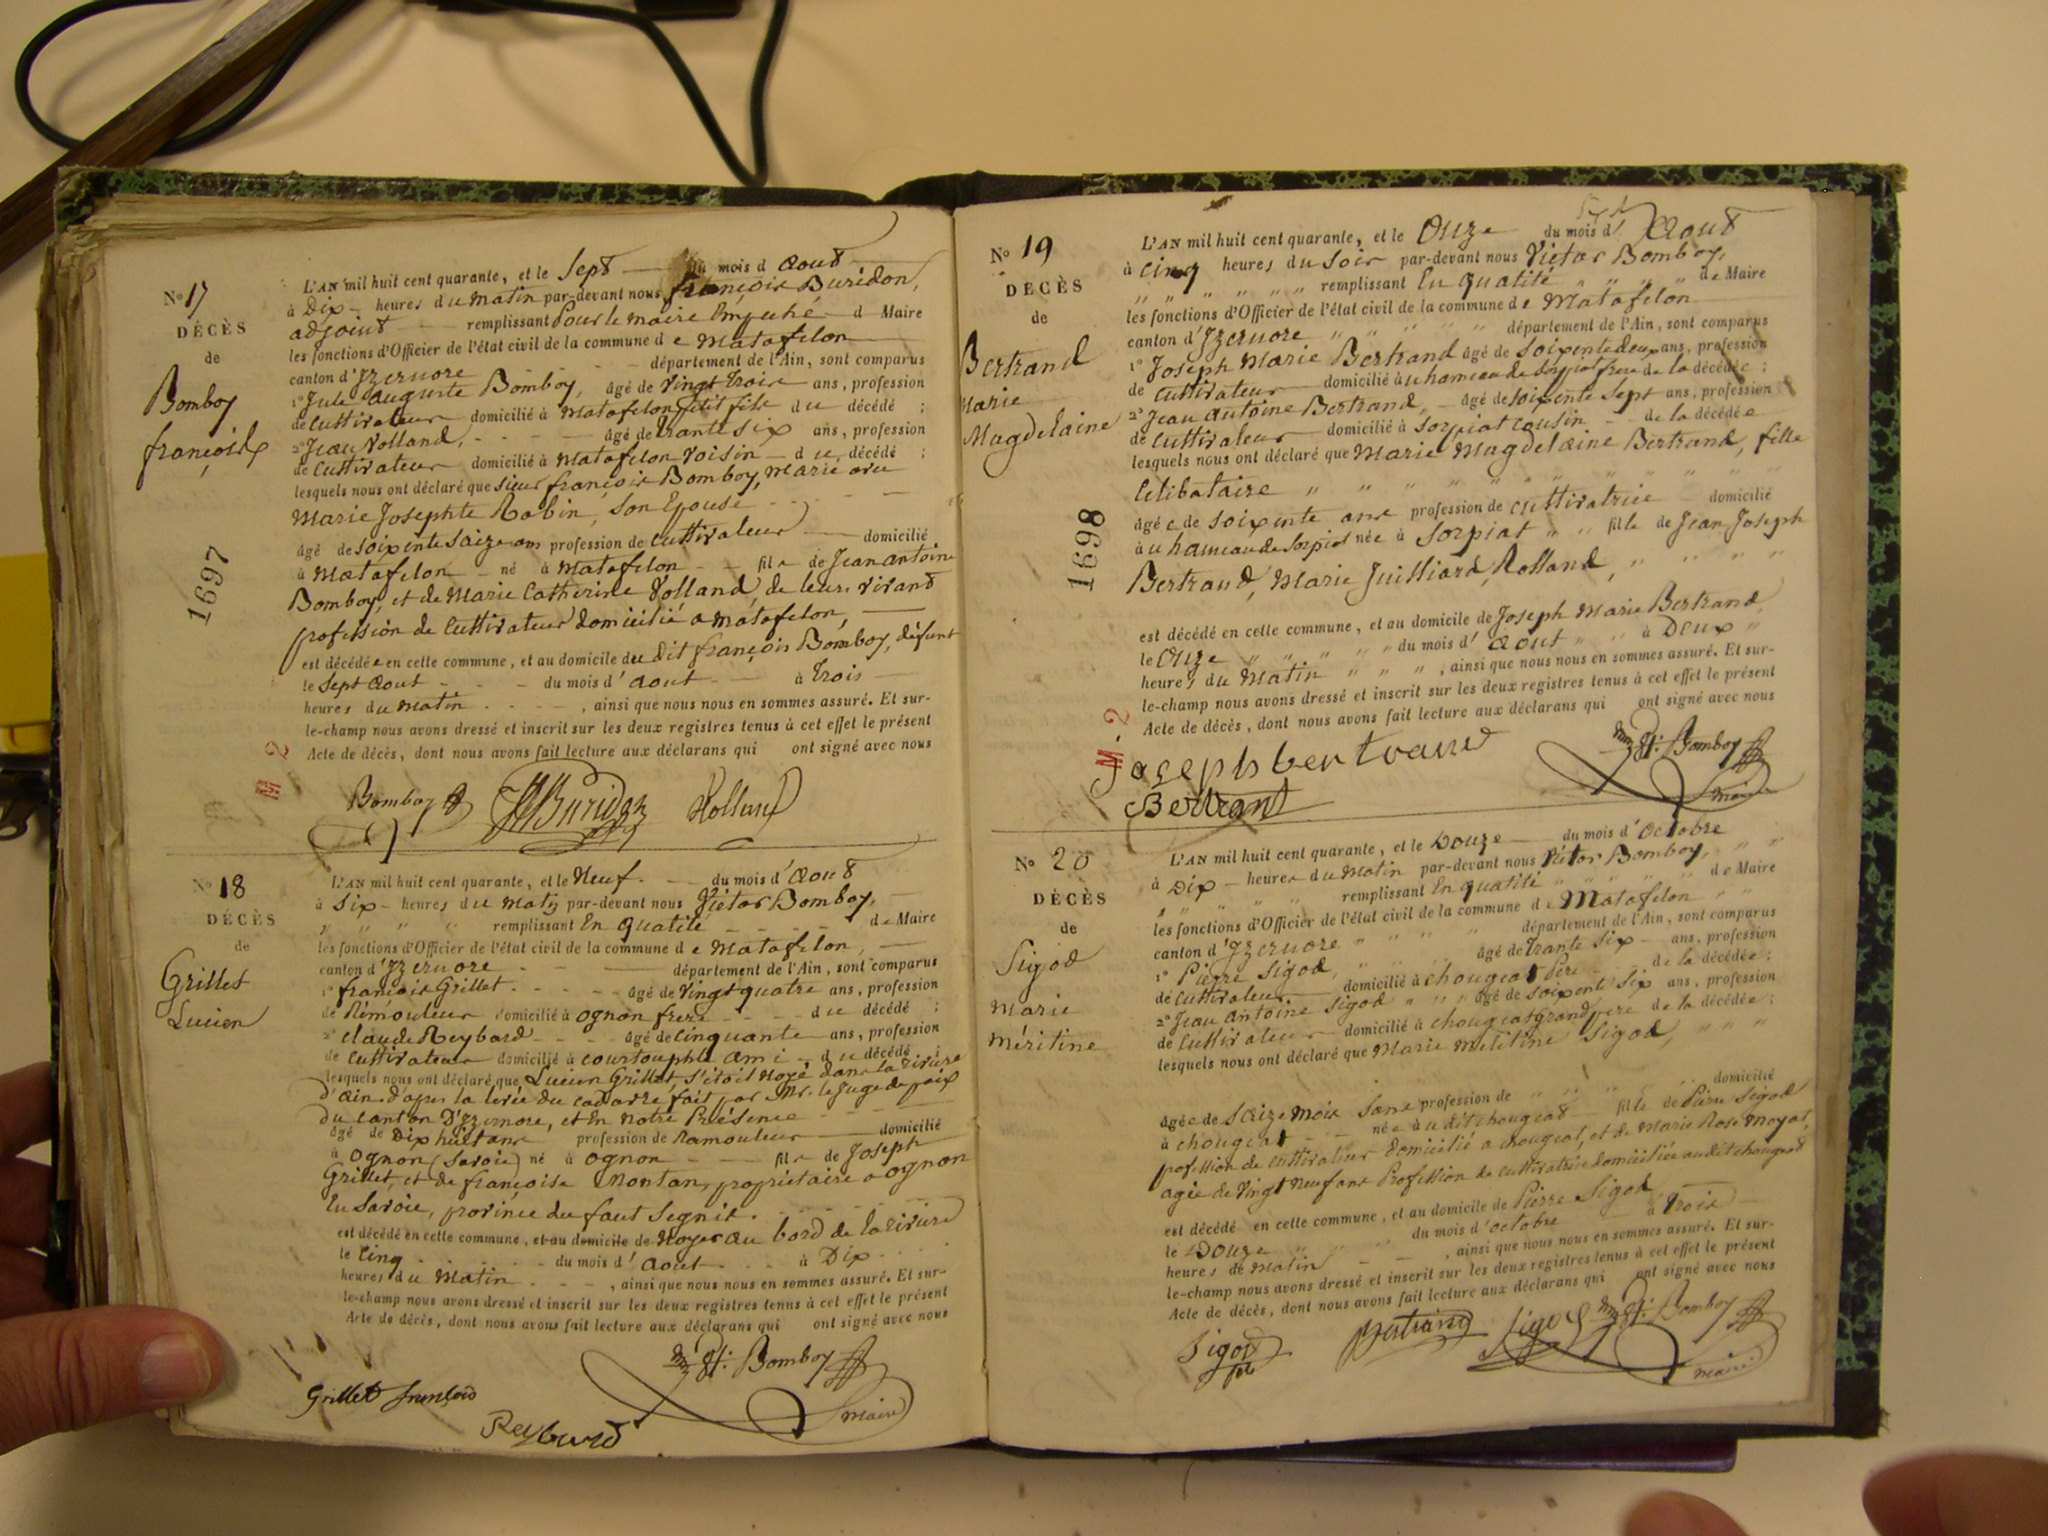 N° 17
DÉCÈS
de
Bomboy
françois
1697
L'AN mil huit cent quarante, et le Sept du mois d'aout
à Dix heures du matin par-devant nous françois Buridon,
adjoint remplissant Pour le maire Empeché d Maire
les fonctions d'Officier de l'état civil de la commune de Matafelon
canton d'Izernore département de l'Ain, sont comparus
1° Jule auguste Bomboy, âgé de Vingt trois ans, profession
de Cultivateur domicilié à Matafelon petit fils du décédé ;
2° Jean Rolland, âgé de trante six ans, profession
de Cultivateur domicilié à Matafelon Voisin du décédé ;
lesquels nous ont déclaré que sieur françois Bomboy, marié avec
Marie Josephte Robin, Son Epouse
âgé de soixente saize ans profession de Cultivateur domicilié
à Matafelon né à Matafelon fils de Jean antoine
Bomboy, et de Marie Catherine Rolland, de leur vivant
profession de Cultivateur domicilié a matafelon,
est décédé en cette commune, et au domicile du dit françois Bomboy, défunt
le Sept Aout du mois d'aout à trois
heures du matin , ainsi que nous nous en sommes assuré. Et sur-
le-champ nous avons dressé et inscrit sur les deux registres tenus à cet effet le présent
Acte de décès, dont nous avons fait lecture aux déclarans qui ont signé avec nous
M 2
Bomboy Buridon Rolland
N° 18
DÉCÈS
de
Grillet
Lucien
L'AN mil huit cent quarante, et le Neuf du mois d'Aout
à Six heures du matin par-devant nous Victor Bomboy,
remplissant En qualité de Maire
les fonctions d'Officier de l'état civil de la commune de Matafelon,
canton d'Izernore département de l'Ain, sont comparus
1° françois Grillet âgé de Vingt quatre ans, profession
de Rémouleur domicilié à ognon frere du décédé ;
2° claude Reybard âgé de Cinquante ans, profession
de Cultivateur domicilié à courtouphle ami du décédé ;
lesquels nous ont déclaré que Lucien Grillet, s'étoit noyé dans la rivière
d'ain d'après la levée du cadavre fait par Mr. le juge de paix
du canton D'Izernore, et En notre Présence
âgé de Dix huit ans profession de Ramouleur domicilié
à ognon (Savoie) né à ognon fils de Joseph
Grillet, et de françoise Montan, propriétaire a ognon
En Savoie, province du faut Segnit.
est décédé en cette commune, et au domicile de Noyer au bord de la rivière
le Cinq du mois d'aout à Dix
heures du Matin , ainsi que nous nous en sommes assuré. Et sur-
le-champ nous avons dressé et inscrit sur les deux registres tenus à cet effet le présent
Acte de décès, dont nous avons fait lecture aux déclarans qui ont signé avec nous
Bomboy
Grillet françois maire
Reybard
N° 19
DÉCÈS
de
Bertrand
Marie
Magdelaine
1698
L'AN mil huit cent quarante, et le Onze du mois d'Aout
à Cinq heures du soir par-devant nous Victor Bomboy,
remplissant En qualité de Maire
les fonctions d'Officier de l'état civil de la commune de Matafelon
canton d'Izernore département de l'Ain, sont comparus
1° Joseph Marie Bertrand âgé de soixente deux ans, profession
de Cultivateur domicilié à u hameau de Sorpiat frere de la décédée ;
2° Jean antoine Bertrand, âgé de soixente sept ans, profession
de Cultivateur domicilié à Sorpiat cousin de la décédée
lesquels nous ont déclaré que Marie Magdelaine Bertrand, fille
Célibataire
âgée de soixente ans profession de cultivatrice domicilié
à u hameau de Sorpiat née à Sorpiat fille de Jean Joseph
Bertrand, Marie Juilliard, Rolland,
est décédé en cette commune, et au domicile de Joseph Marie Bertrand,
le Onze du mois d'aout à Deux
heures du Matin , ainsi que nous nous en sommes assuré. Et sur-
le-champ nous avons dressé et inscrit sur les deux registres tenus à cet effet le présent
Acte de décès, dont nous avons fait lecture aux déclarans qui ont signé avec nous
M. 2
Joseph bertrand Bomboy
Bertrant maire
N° 20
DÉCÈS
de
Sigod
Marie
Méritine
L'AN mil huit cent quarante, et le Douze du mois d'octobre
à Dix heures du Matin par-devant nous Victor Bomboy,
remplissant En qualité de Maire
les fonctions d'Officier de l'état civil de la commune de Matafelon
canton d'Izernore département de l'Ain, sont comparus
1° Pierre Sigod, âgé de trante six ans, profession
de Cultivateur domicilié à chougeat Pere de la décédée ;
2° Jean Antoine Sigod âgé de soixent six ans, profession
de Cultivateur domicilié à chougeat grand pere de la décédée ;
lesquels nous ont déclaré que Marie Mélitine Sigod,
âgée de Saize mois Sans profession de domicilié
à chougeat née à u dit chougeat fille de Pierre Sigod
pofession de cultivateur domicilié a chougeat, et de Marie Rose Moyat,
agée de vingt neuf ans Profession de cultivatrice domiciliée audit chougeat
est décédé en cette commune, et au domicile de Pierre Sigod
le Douze du mois d'octobre à Trois
heures de Matin , ainsi que nous nous en sommes assuré. Et sur-
le-champ nous avons dressé et inscrit sur les deux registres tenus à cet effet le présent
Acte de décès, dont nous avons fait lecture aux déclarans qui ont signé avec nous
Sigod Bertrand Sigod Bomboy
maire